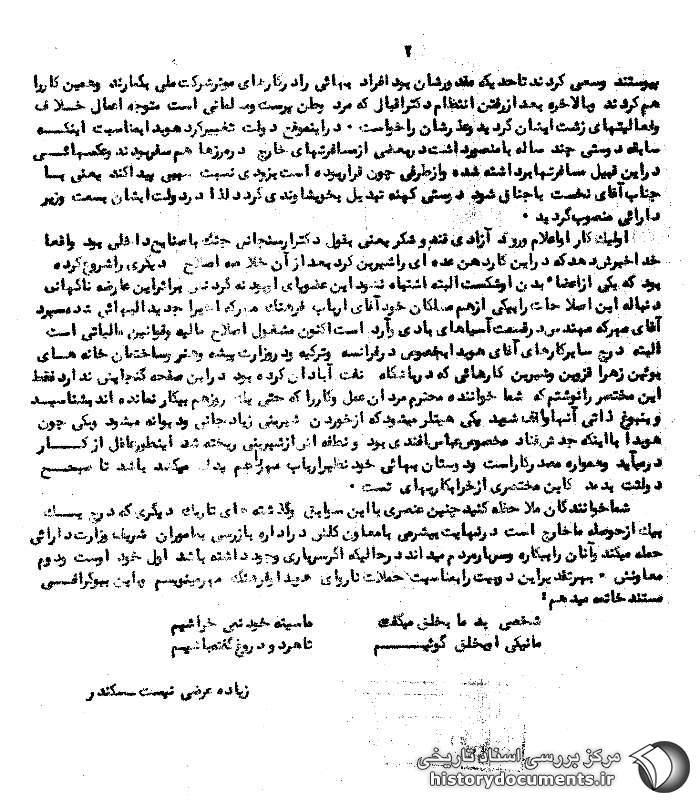 ۲
بپیوستند وسعی کردند تا حدیکه مقدورشان بود افراد بهائی را در کارهای موثر شرکت ملی بگمارند وهمین کار را
هم کردند وبالاخره بعد از رفتن انتظام دکتر اقبال که مرد وطن پرست و مسلمانی است متوجه اعمال خلاف
وفعالیتهای زشت ایشان گردید وعذرشان را خواست ۰ در اینموقع دولت تغییر کرد هویدا بمناسبت اینکه
سابقه دوستی چند ساله با منصور داشت در بعضی از مسافرتهای خارج در مرزها هم سفر بودند وعکسهائی
در این قبیل مسافرتها برداشته شده واز طرفی چون قرار بوده است بزودی نسبت سببی پیدا کند یعنی با
جناب آقای نخست باجناق شود دوستی کهنه تبدیل بخویشاوندی گردد لذا در دولت ایشان بسمت وزیر
دارائی منصوب گردید ۰
اولین کار او اعلام ورود آزادی قند و شکر یعنی بقول دکتر ارسنجانی جنگ با صنایع داخلی بود واقعا
خدا خیرش دهد که در این کار دهن عده ای را شیرین کرد بعد از آن اصلاح دیگری را شروع کرده
بود که یکی از اعضاء بدن او شکست البته اشتباه نشود این عضو پای او بود نه گردنش بر اثر این عارضه ناگهانی
دنباله این اصلاحات را بیکی از هم مسلکان خود آقای ارباب فرهنگ مهر که اخیرا جدید البهائی شده سپرد
آقای مهر که مهندس در قسمت آسیاهای بادی وارد است اکنون مشغول اصلاح مالیه وقوانین مالیاتی است
البته درج سایر کارهای آقای هویدا بخصوص در فرانسه وترکیه ودر وزارت پیشه وهنر وساختمان خانه های
پوئین زهرا قزوین وشیرین کارهائی که در باشگاه نفت آبادان کرده بود در این صفحه گنجایش ندارد فقط
این مختصر را نوشتم که شما خواننده محترم مردان عمل وکار را که حتی یک روز هم بیکار نمانده اند بشناسید
وبنبوغ ذاتی آنها واقف شوید یکی هیتلر میشود که از خوردن شیرینی زیاد جانی ودیوانه میشود ویکی چون
هویدا با اینکه جدش قناد مخصوص عباس افندی بود ونطفه اش از شیرینی ریخته شد اینطور عاقل از کار
درمیآید وهمواره مصدر کار است ودوستان بهائی خود نظیر ارباب مهر را هم یدک میکشد باشد تا صبح
دولتت بدمد کاین مختصری از خرابکاریهای تست ۰
شما خوانندگان ملاحظه کنید چنین عنصری با این سوابق وگذشته های تاریک دیگری که درج یک
بیک از حوصله ما خارج است در نهایت بیشرمی با معاون کلش در اداره بازرسی بماموران شریف وزارت دارائی
حمله میکند وآنان را بیکاره وسربار مردم میداند در حالیکه اگر سرباری وجود داشته باشد اول خود اوست ودوم
معاونش ۰ بهر تقدیر این دوبیت را بمناسبت حملات ناروای هویدا وفرهنگ مهر مینویسم وباین بیوگرافی
مستند خاتمه میدهم:
شخصی بد ما بخلق میگفت ما سینه خود نمی خراشیم
ما نیکی او بخلق گوئیم تا هر دو دروغ گفته باشیم
زیاده عرضی نیست سکندر
مرکز بررسی اسناد تاریخی
historydocuments.ir